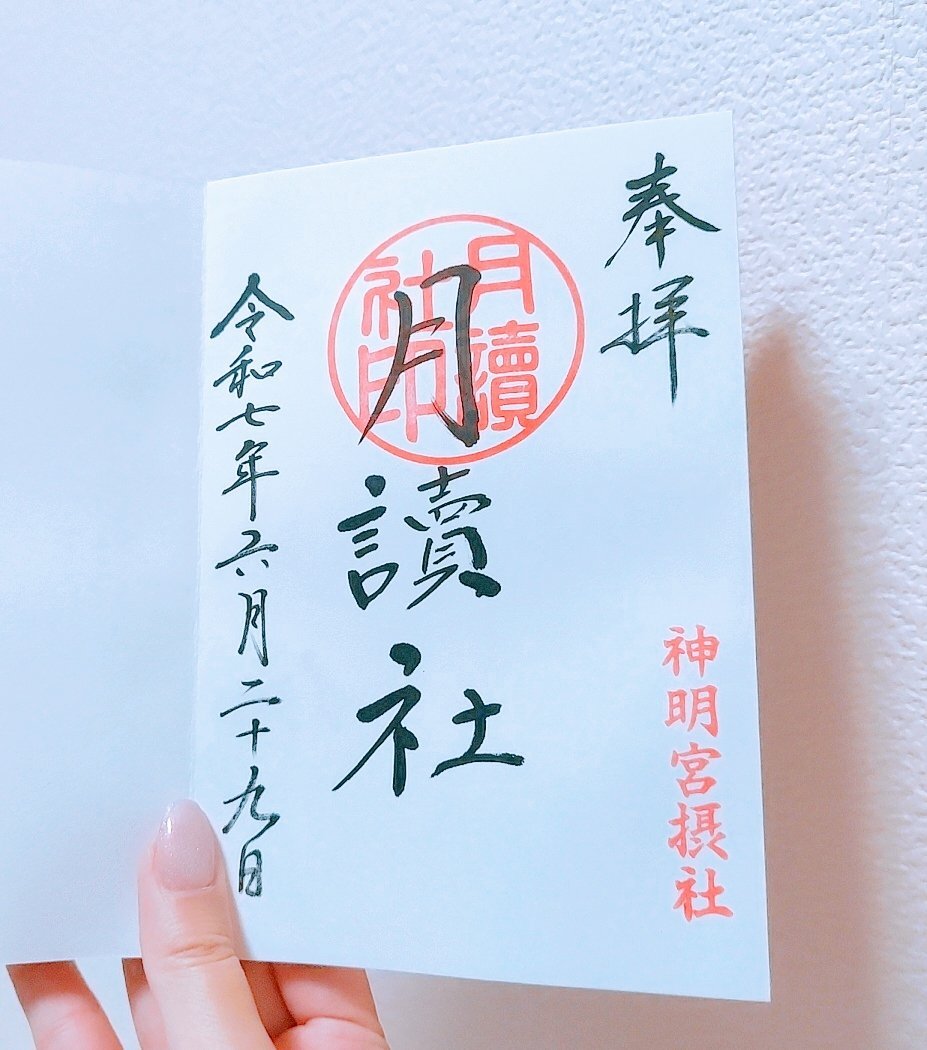 奉拝
神明宮摂社
月讀
社印
月讀社
令和七年六月二十九日